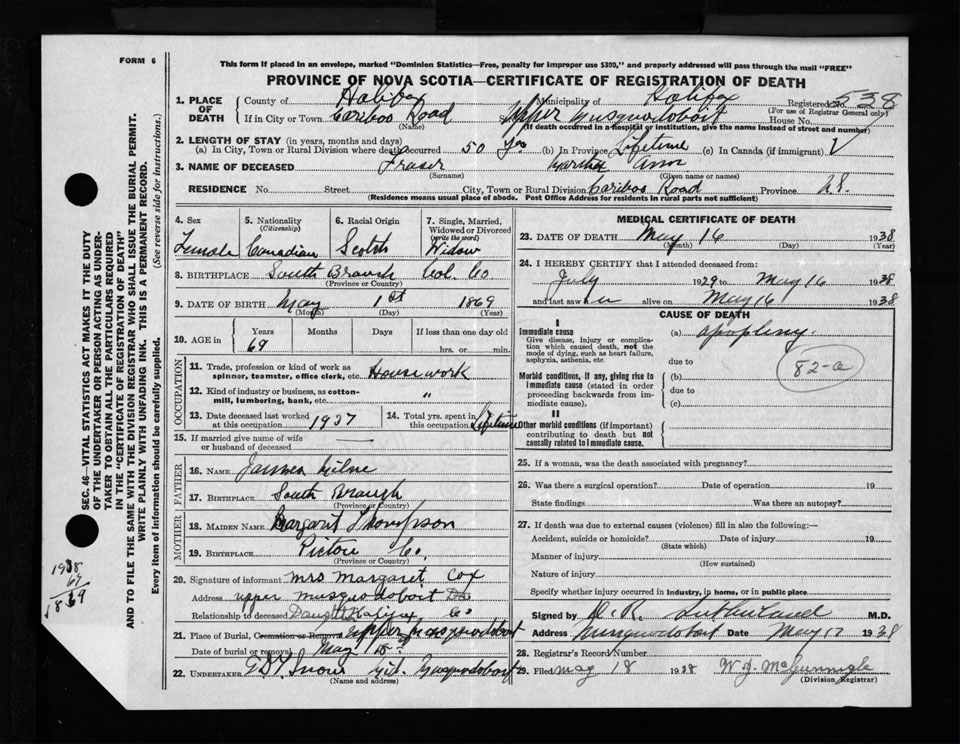 FORM 6
This form if placed in an envelope, marked "Dominion Statistics—Free, penalty for improper use $300," and properly addressed will pass through the mail "FREE"
PROVINCE OF NOVA SCOTIA—CERTIFICATE OF REGISTRATION OF DEATH
1. PLACE OF DEATH
County of Halifax Municipality of Halifax Registered No. 538
(For use of Registrar General only)
If in City or Town Cariboo Road Upper Musquodoboit House No.
(Name) (If death occurred in a hospital or institution, give the name instead of street and number)
2. LENGTH OF STAY (in years, months and days)
(a) In City, Town or Rural Division where death occurred 50 yrs (b) In Province Lifetime (c) In Canada (if immigrant) V
3. NAME OF DECEASED Fraser Martha Ann
(Surname) (Given name or names)
RESIDENCE No. Street City, Town or Rural Division Cariboo Road Province N.S.
(Residence means usual place of abode. Post Office Address for residents in rural parts not sufficient)
4. Sex Female
5. Nationality (Citizenship) Canadian
6. Racial Origin Scotch
7. Single, Married, Widowed or Divorced (write the word) Widow
8. BIRTHPLACE South Branch Col. Co
(Province or Country)
9. DATE OF BIRTH May 1st 1869
(Month) (Day) (Year)
10. AGE in Years 69 Months Days If less than one day old
hrs. or min.
OCCUPATION
11. Trade, profession or kind of work as spinner, teamster, office clerk, etc. Housework
12. Kind of industry or business, as cotton-mill, lumbering, bank, etc. "
13. Date deceased last worked at this occupation 1937
14. Total yrs. spent in this occupation Lifetime
15. If married give name of wife or husband of deceased —
FATHER
16. NAME Milne
17. BIRTHPLACE South Branch
(Province or Country)
MOTHER
18. MAIDEN NAME Margaret Thompson
19. BIRTHPLACE Pictou Co.
(Province or Country)
20. Signature of informant Mrs Margaret Cox
Address Upper Musquodoboit
Relationship to deceased Daughter Halifax Co
21. Place of Burial, Cremation or Removal Upper Musquodoboit
Date of burial or removal May 18
22. UNDERTAKER Mid. Musquodoboit
(Name and address)
MEDICAL CERTIFICATE OF DEATH
23. DATE OF DEATH May 16 1938
(Month) (Day) (Year)
24. I HEREBY CERTIFY that I attended deceased from:
July 1929 to May 16 1938
and last saw her alive on May 16 1938
CAUSE OF DEATH
I
Immediate cause
Give disease, injury or complication which caused death, not the mode of dying, such as heart failure, asphyxia, asthenia, etc.
(a) apoplexy.
due to
82-a
Morbid conditions, if any, giving rise to immediate cause (stated in order proceeding backwards from immediate cause).
(b)
due to
(c)
II
Other morbid conditions (if important) contributing to death but not causally related to immediate cause.
25. If a woman, was the death associated with pregnancy?
26. Was there a surgical operation? Date of operation 19
State findings Was there an autopsy?
27. If death was due to external causes (violence) fill in also the following:—
Accident, suicide or homicide? Date of injury 19
(State which)
Manner of injury
(How sustained)
Nature of injury
Specify whether injury occurred in Industry, in home, or in public place
Signed by Sutherland M.D.
Address Musquodoboit Date May 17 1938
28. Registrar's Record Number
29. Filed May 18 1938 W J McGunnigle
(Division Registrar)
SEC. 46—VITAL STATISTICS ACT MAKES IT THE DUTY
OF THE UNDERTAKER OR PERSON ACTING AS UNDER-
TAKER TO OBTAIN ALL THE PARTICULARS REQUIRED
IN THE "CERTIFICATE OF REGISTRATION OF DEATH"
AND TO FILE THE SAME WITH THE DIVISION REGISTRAR WHO SHALL ISSUE THE BURIAL PERMIT.
WRITE PLAINLY WITH UNFADING INK. THIS IS A PERMANENT RECORD.
Every item of information should be carefully supplied. (See reverse side for instructions.)
1938
69
1869